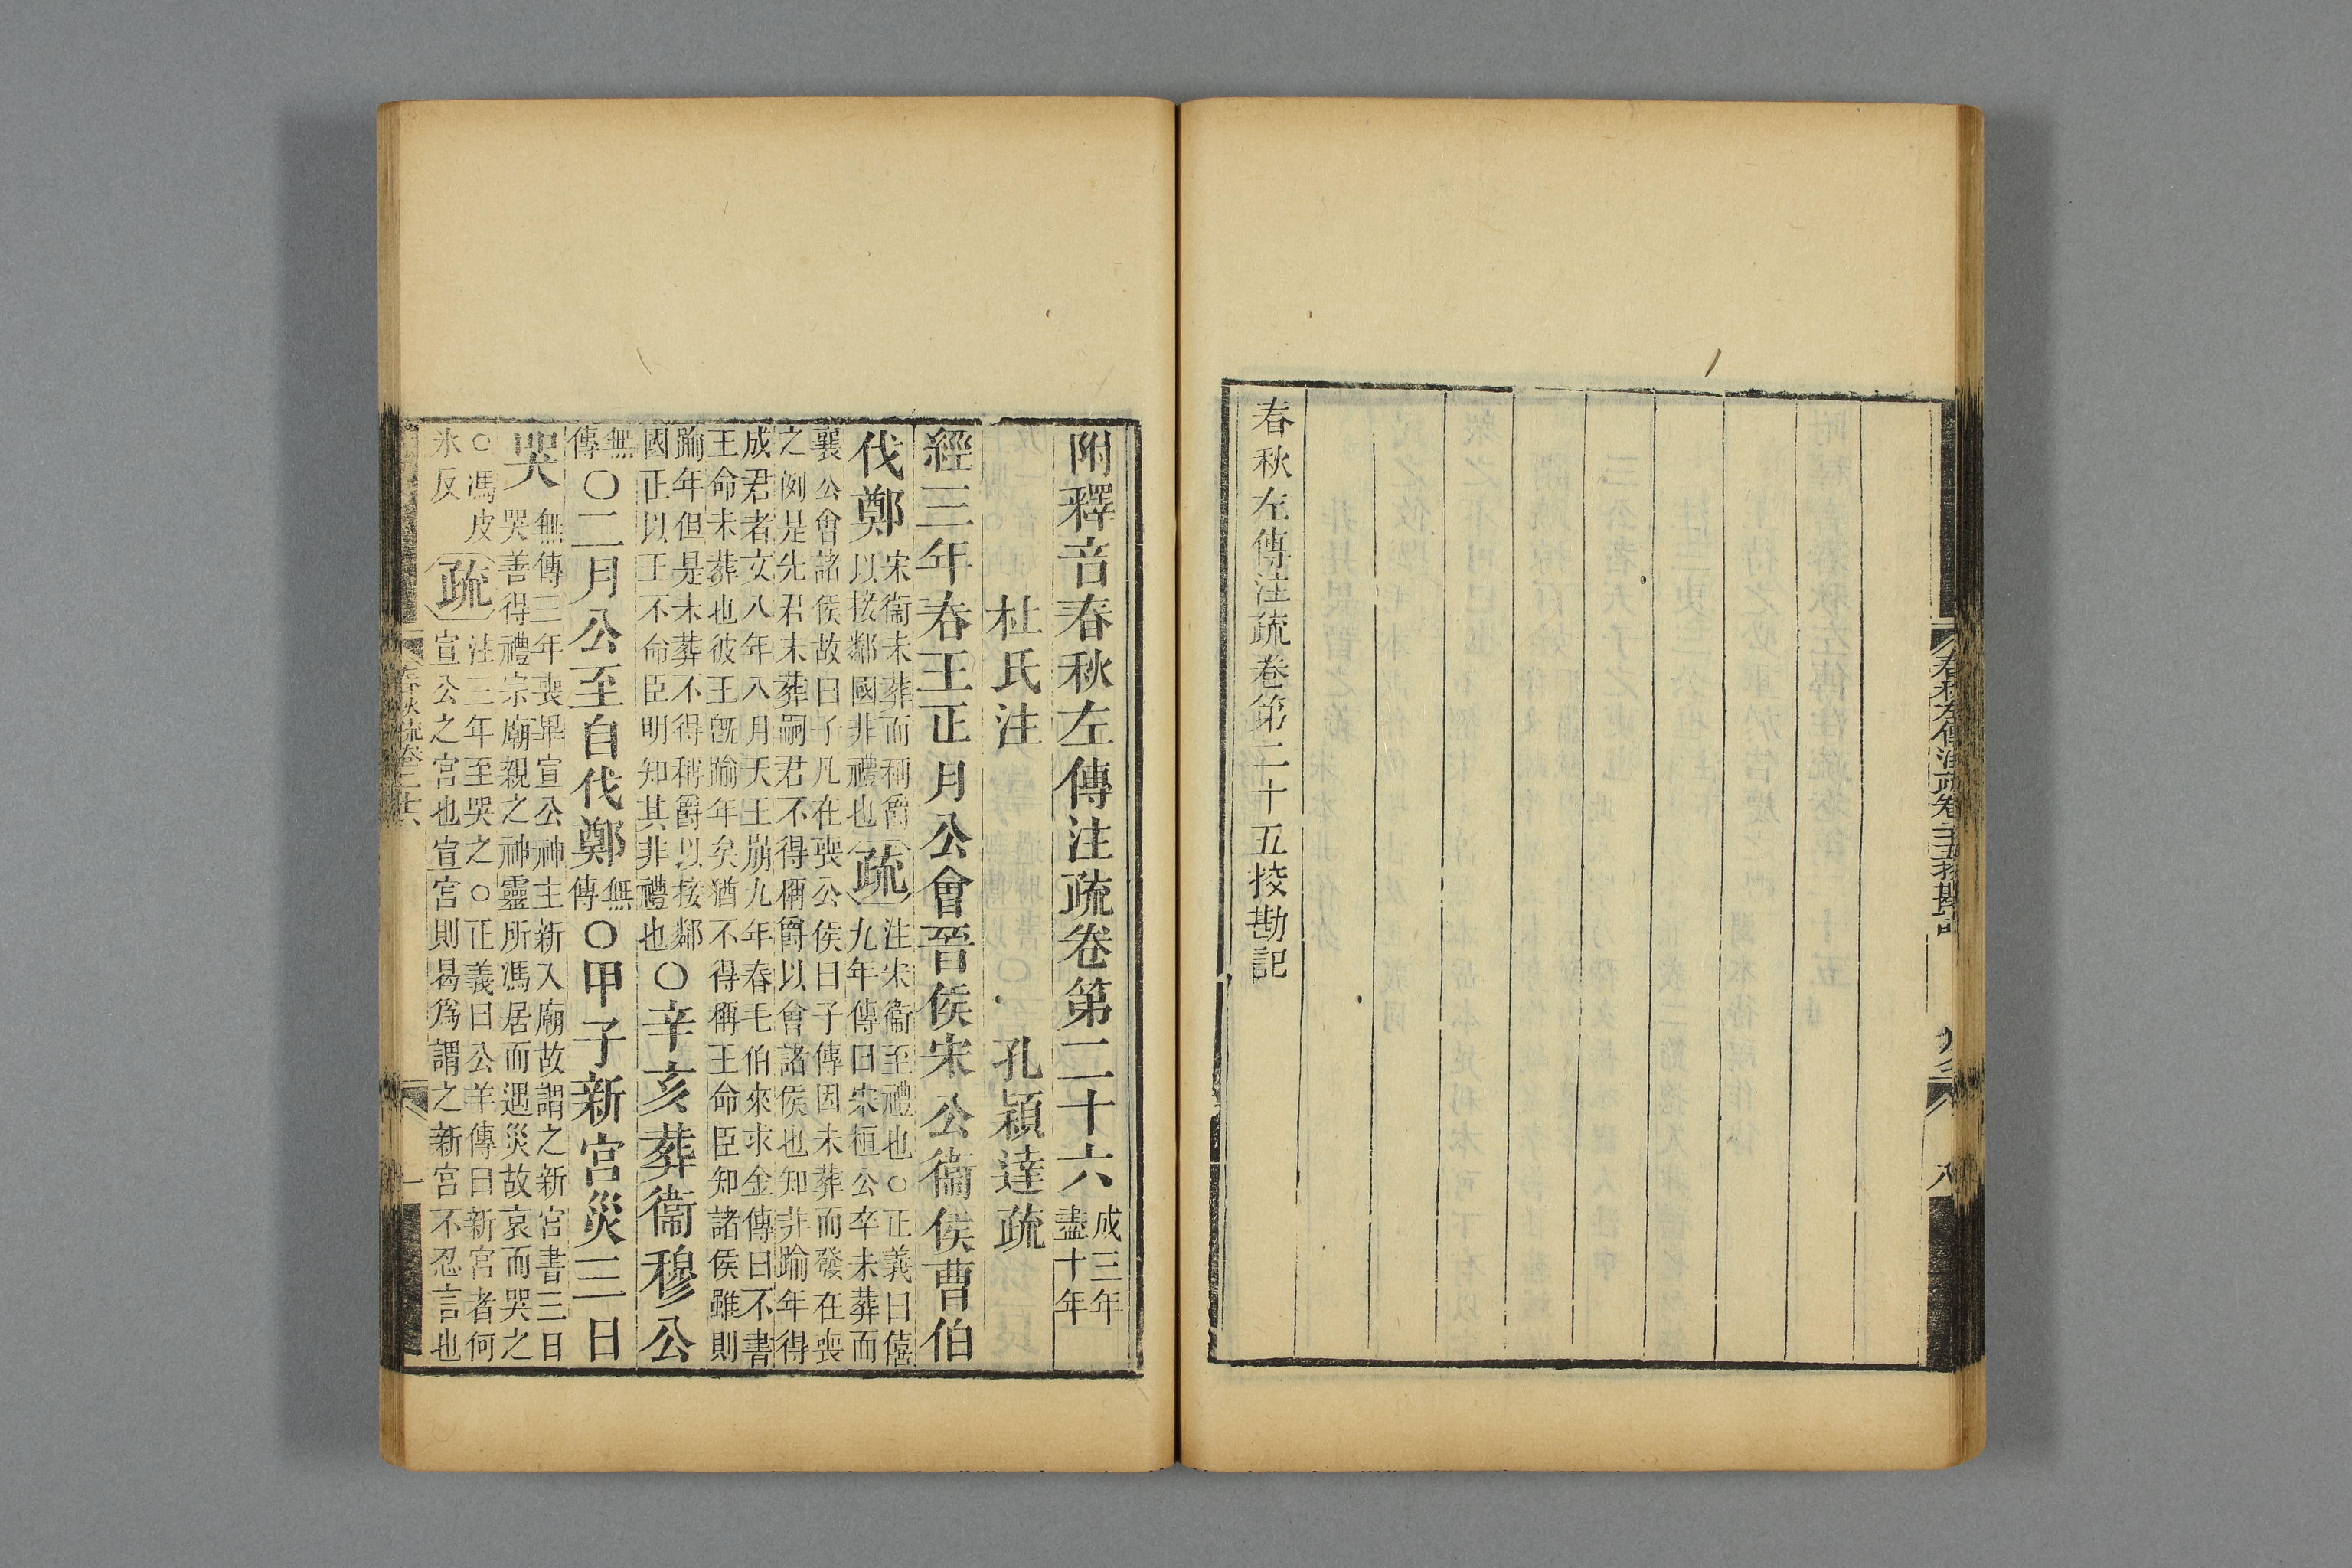 春秋左傳注疏卷二十五挍勘記
八
春秋左傳注疏卷第二十五挍勘記
附釋音春秋左傳注疏卷第二十六
成三年
盡十年
杜氏注 孔穎達疏
經三年春王正月公會晉侯宋公衞侯曹伯
伐鄭
宋衞未葬而稱爵
以接鄰國非禮也
疏
注宋衞至禮也○正義曰僖
九年傳曰宋桓公卒未葬而
襄公會諸侯故曰子凡在喪公侯曰子傳因未葬而發在喪
之例是先君未葬嗣君不得稱爵以會諸侯也知非踰年得
成君者文八年八月天王崩九年春毛伯來求金傳曰不書
王命未葬也彼王旣踰年矣猶不得稱王命臣知諸侯雖則
踰年但是未葬不得稱爵以接鄰
國正以王不命臣明知其非禮也
○辛亥葬衞穆公
無
傳
○二月公至自伐鄭
無
傳
○甲子新宮災三日
哭
無傳三年喪畢宣公神主新入廟故謂之新宮書三日
哭善得禮宗廟親之神靈所馮居而遇災故哀而哭之
○馮皮
氷反
疏
注三年至哭之○正義曰公羊傳曰新宮者何
宣公之宮也宣宮則曷爲謂之新宮不忍言也
春秋疏卷二十六
一